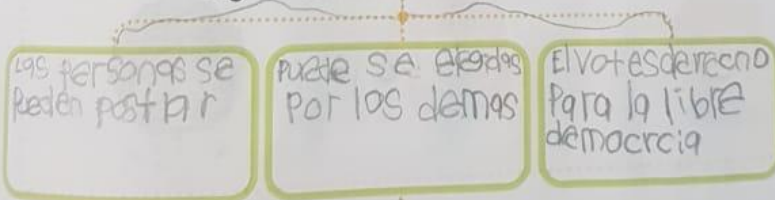 Las personas se
pueden postlar
puede se elegidas
por los demas
El vot es derecho
Para la libre
democrcia